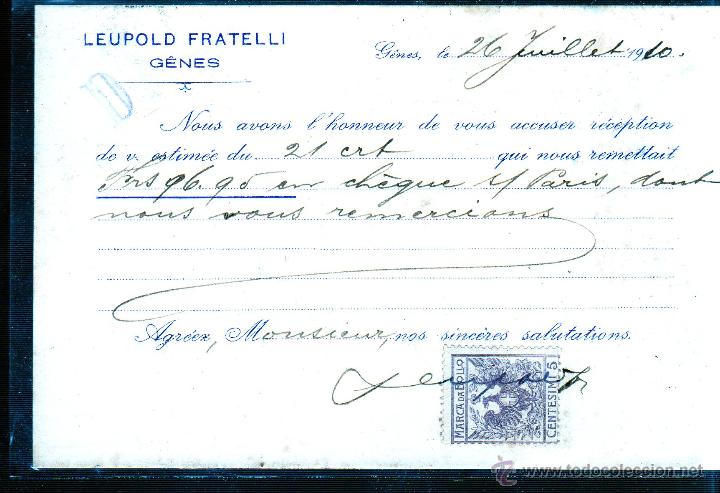 LEUPOLD FRATELLI
GÊNES
Gênes, le 26 Juillet 1910.
D
Nous avons l'honneur de vous accuser réception
de v. estimée du 21 crt qui nous remettait
Frs 96.95 en chèque s/ Paris, dont
nous vous remercions
Agréez, Monsieur, nos sincères salutations.
MARCA DA BOLLO
CENTESIMI 5
www.todocoleccion.net